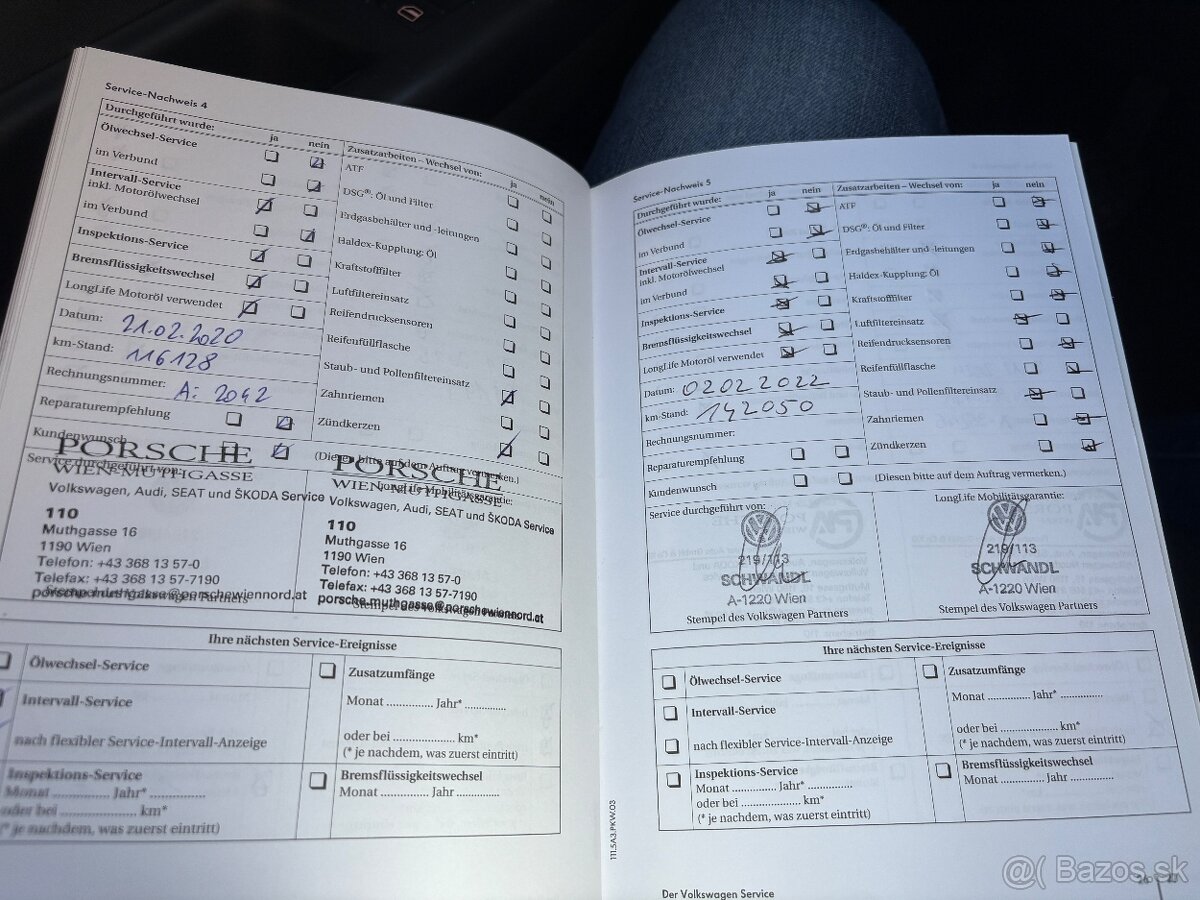 Service-Nachweis 4
Durchgeführt wurde:
ja
nein
Ölwechsel-Service
im Verbund
Intervall-Service
inkl. Motorölwechsel
im Verbund
Inspektions-Service
Bremsflüssigkeitswechsel
LongLife Motoröl verwendet
Datum: 21.02.2020
km-Stand: 116128
Rechnungsnummer: A: 2042
Reparaturempfehlung
Kundenwunsch
Zusatzarbeiten – Wechsel von:
ja
nein
ATF
DSG®: Öl und Filter
Erdgasbehälter und -leitungen
Haldex-Kupplung: Öl
Kraftstofffilter
Luftfiltereinsatz
Reifendrucksensoren
Reifenfüllflasche
Staub- und Pollenfiltereinsatz
Zahnriemen
Zündkerzen
(Diesen bitte auf dem Auftrag vermerken.)
Service durchgeführt von:
PORSCHE
WIEN-MUTHGASSE
Volkswagen, Audi, SEAT und ŠKODA Service
110
Muthgasse 16
1190 Wien
Telefon: +43 368 13 57-0
Telefax: +43 368 13 57-7190
porsche.muthgasse@porschewiennord.at
Stempel des Volkswagen Partners
LongLife Mobilitätsgarantie:
PORSCHE
WIEN-MUTHGASSE
Volkswagen, Audi, SEAT und ŠKODA Service
110
Muthgasse 16
1190 Wien
Telefon: +43 368 13 57-0
Telefax: +43 368 13 57-7190
porsche.muthgasse@porschewiennord.at
Stempel des Volkswagen
Ihre nächsten Service-Ereignisse
Ölwechsel-Service
Intervall-Service
nach flexibler Service-Intervall-Anzeige
Inspektions-Service
Monat .............. Jahr* ..............
oder bei .................... km*
(* je nachdem, was zuerst eintritt)
Zusatzumfänge
Monat .............. Jahr* ..............
oder bei .................... km*
(* je nachdem, was zuerst eintritt)
Bremsflüssigkeitswechsel
Monat .............. Jahr ..............
111.5A3.PKW.03
Service-Nachweis 5
Durchgeführt wurde:
ja
nein
Ölwechsel-Service
im Verbund
Intervall-Service
inkl. Motorölwechsel
im Verbund
Inspektions-Service
Bremsflüssigkeitswechsel
LongLife Motoröl verwendet
Datum: 02022022
km-Stand: 142050
Rechnungsnummer:
Reparaturempfehlung
Kundenwunsch
Zusatzarbeiten – Wechsel von:
ja
nein
ATF
DSG®: Öl und Filter
Erdgasbehälter und -leitungen
Haldex-Kupplung: Öl
Kraftstofffilter
Luftfiltereinsatz
Reifendrucksensoren
Reifenfüllflasche
Staub- und Pollenfiltereinsatz
Zahnriemen
Zündkerzen
(Diesen bitte auf dem Auftrag vermerken.)
Service durchgeführt von:
219/113
SCHWANDL
A-1220 Wien
Stempel des Volkswagen Partners
LongLife Mobilitätsgarantie:
219/113
SCHWANDL
A-1220 Wien
Stempel des Volkswagen Partners
Ihre nächsten Service-Ereignisse
Ölwechsel-Service
Intervall-Service
nach flexibler Service-Intervall-Anzeige
Inspektions-Service
Monat .............. Jahr* ..............
oder bei .................... km*
(* je nachdem, was zuerst eintritt)
Zusatzumfänge
Monat .............. Jahr* ..............
oder bei .................... km*
(* je nachdem, was zuerst eintritt)
Bremsflüssigkeitswechsel
Monat .............. Jahr ..............
Der Volkswagen Service
Bazos.sk